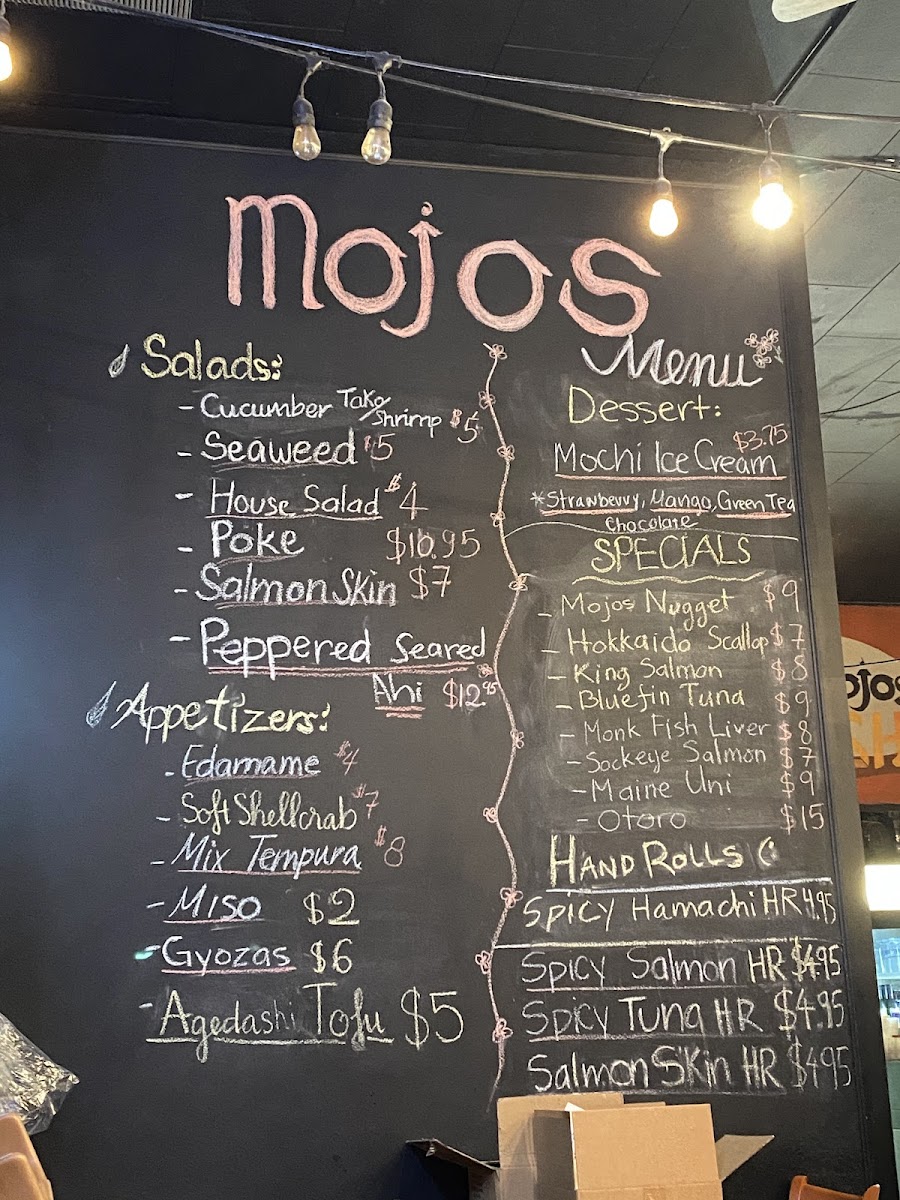 Mojos
Menu
Salads:
- Cucumber Tako/Shrimp $5
- Seaweed $5
- House Salad $4
- Poke $10.95
- Salmon Skin $7
- Peppered Seared
Ahi $12.95
Appetizers:
- Edamame $4
- Soft Shellcrab $7
- Mix Tempura $8
- Miso $2
- Gyozas $6
- Agedashi Tofu $5
Dessert:
Mochi Ice Cream $3.75
*Strawberry, Mango, Green Tea
Chocolate
SPECIALS
- Mojos Nugget $9
- Hokkaido Scallop $7
- King Salmon $8
- Bluefin Tuna $9
- Monk Fish Liver $8
- Sockeye Salmon $7
- Maine Uni $9
- Otoro $15
HAND ROLLS
Spicy Hamachi HR 4.95
Spicy Salmon HR $4.95
Spicy Tuna HR $4.95
Salmon Skin HR $4.95